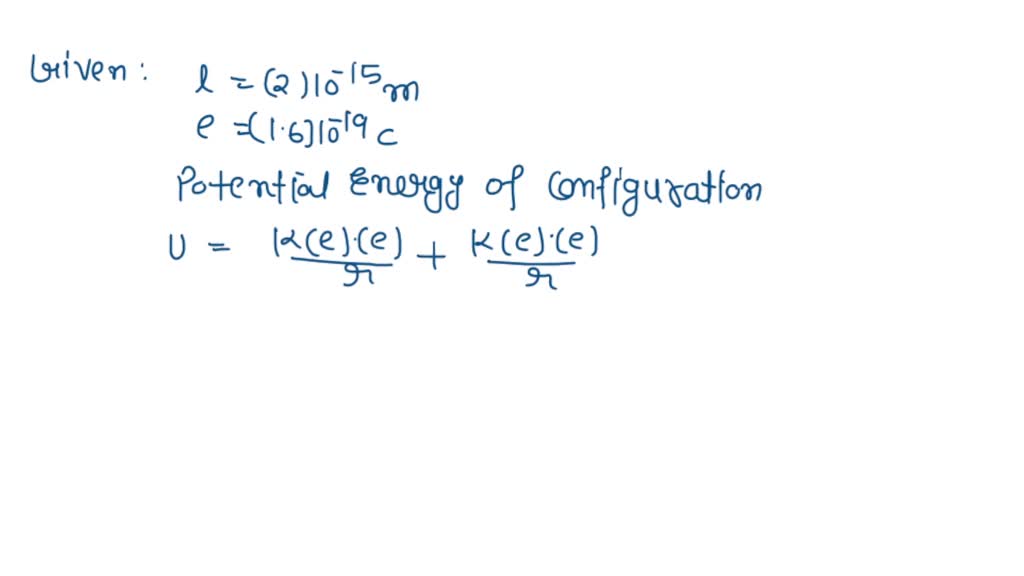 Given: l = (2)10^-15 m
e = (1.6)10^-19 C
Potential Energy of Configuration
U = K(e)·(e)/r + K(e)·(e)/r